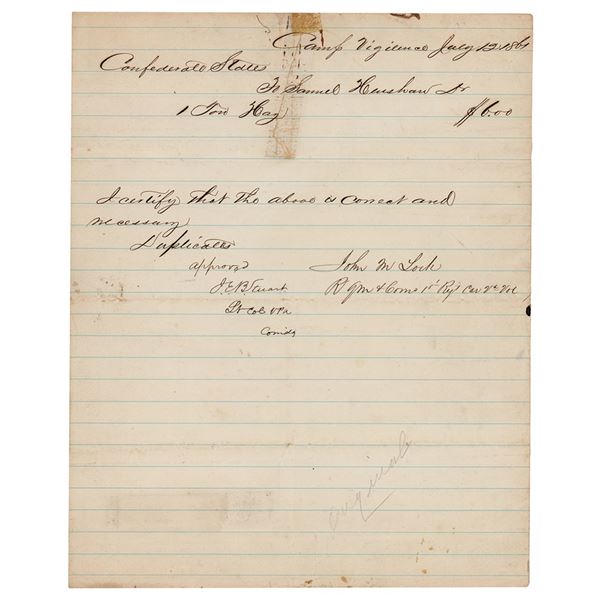 Camp Vigilence July 12. 1861
Confederate States
To Samuel Henshaw Dr
1 Ton Hay $6.00
I certify that the above is correct and
necessary
Duplicates
approved John M Lock
J.E.B. Stuart R Qm & Coms 1st Regt Cav Va Vol
Lt Col VPA
Comdg
Original